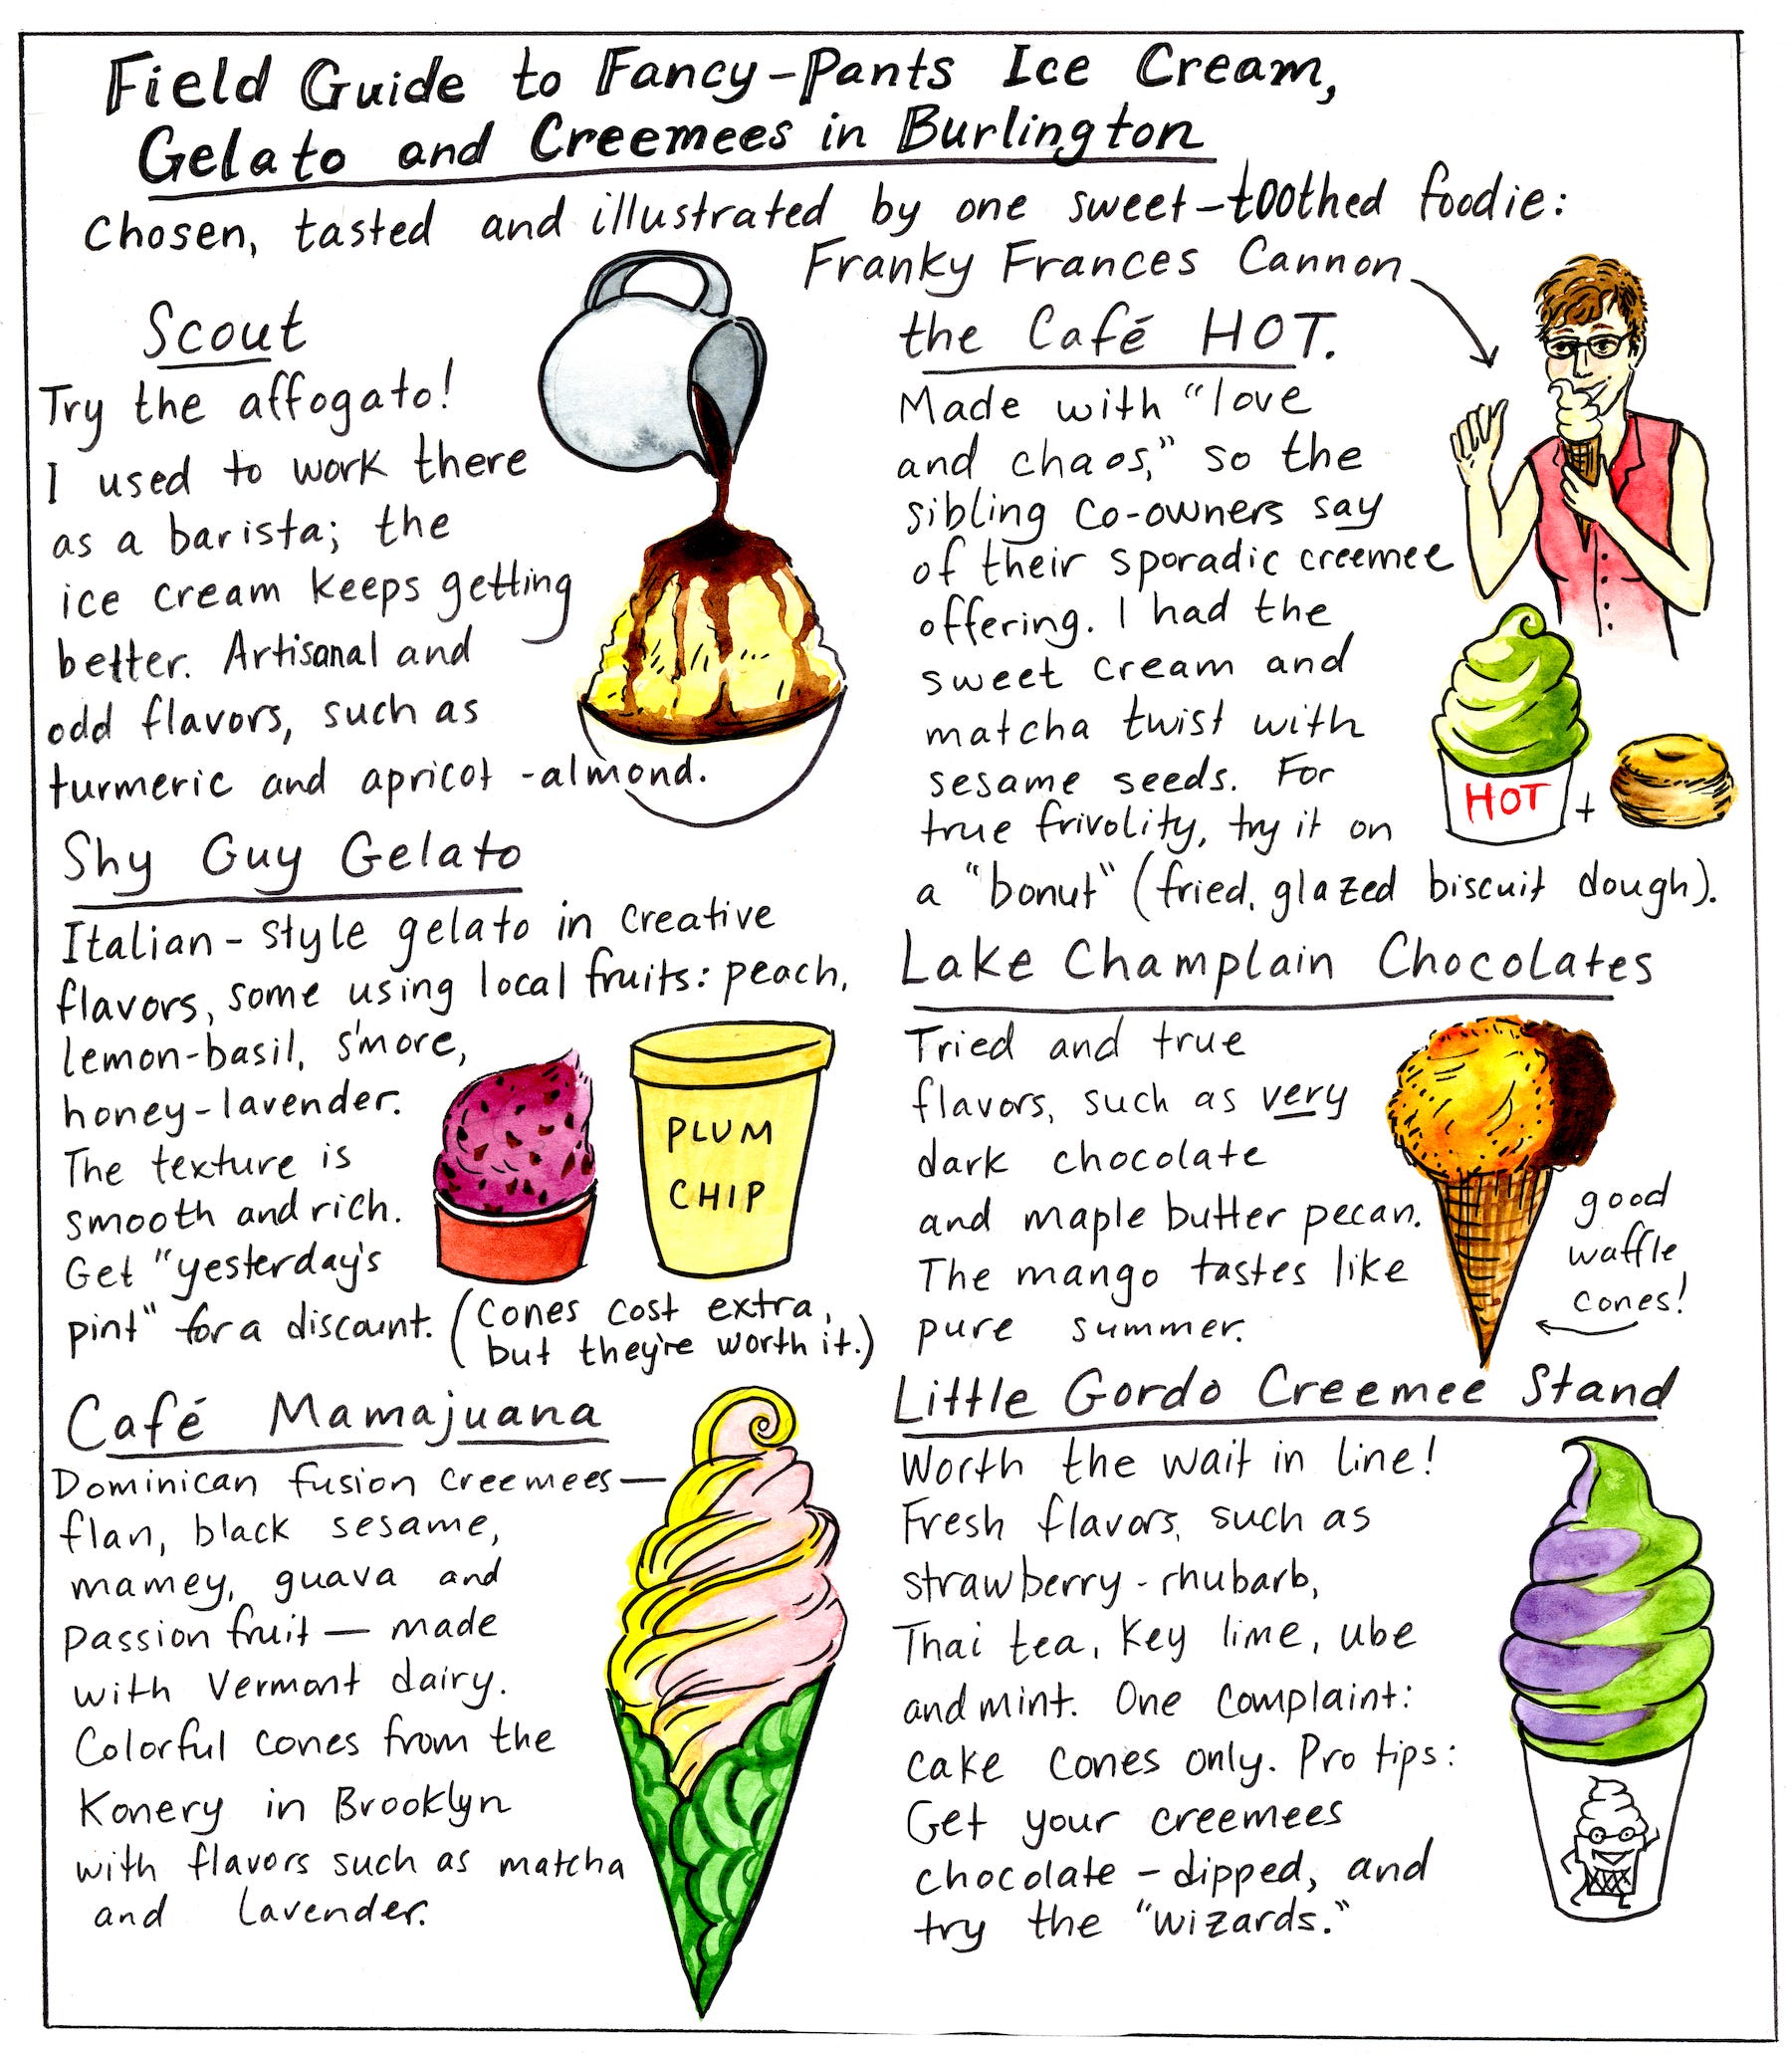 Field Guide to Fancy-Pants Ice Cream,
Gelato and Creemees in Burlington
Chosen, tasted and illustrated by one sweet-toothed foodie:
Franky Frances Cannon
Scout
Try the affogato!
I used to work there
as a barista; the
ice cream keeps getting
better. Artisanal and
odd flavors, such as
turmeric and apricot-almond.
Shy Guy Gelato
Italian-style gelato in creative
flavors, some using local fruits: peach,
lemon-basil, s'more,
honey-lavender.
The texture is
smooth and rich.
Get "yesterday's
pint" for a discount.
(Cones cost extra,
but they're worth it.)
PLUM
CHIP
Café Mamajuana
Dominican fusion creemees—
flan, black sesame,
mamey, guava and
passion fruit— made
with Vermont dairy.
Colorful cones from the
Konery in Brooklyn
with flavors such as matcha
and lavender.
the Café HOT.
Made with "love
and chaos," so the
sibling co-owners say
of their sporadic creemee
offering. I had the
sweet cream and
matcha twist with
sesame seeds. For
true frivolity, try it on
a "bonut" (fried, glazed biscuit dough).
HOT +
Lake Champlain Chocolates
Tried and true
flavors, such as very
dark chocolate
and maple butter pecan.
The mango tastes like
pure summer.
good
waffle
cones!
Little Gordo Creemee Stand
Worth the wait in line!
Fresh flavors, such as
strawberry-rhubarb,
Thai tea, Key lime, ube
and mint. One complaint:
cake cones only. Pro tips:
Get your creemees
chocolate-dipped, and
try the "wizards."